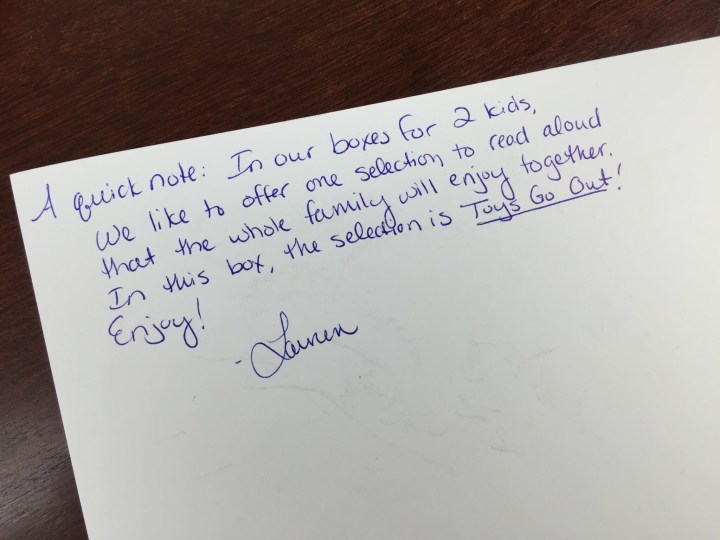 A quick note: In our boxes for 2 kids,
We like to offer one selection to read aloud
that the whole family will enjoy together.
In this box, the selection is Toys Go Out!
Enjoy!
- Lauren